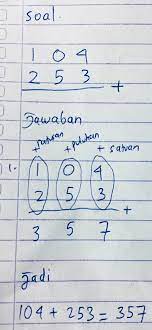 Soal.
1 0 4
2 5 3 +
Jawaban
ratusan puluhan satuan
1. 1 0 4
2 5 3 +
3 5 7
Jadi
104 + 253 = 357